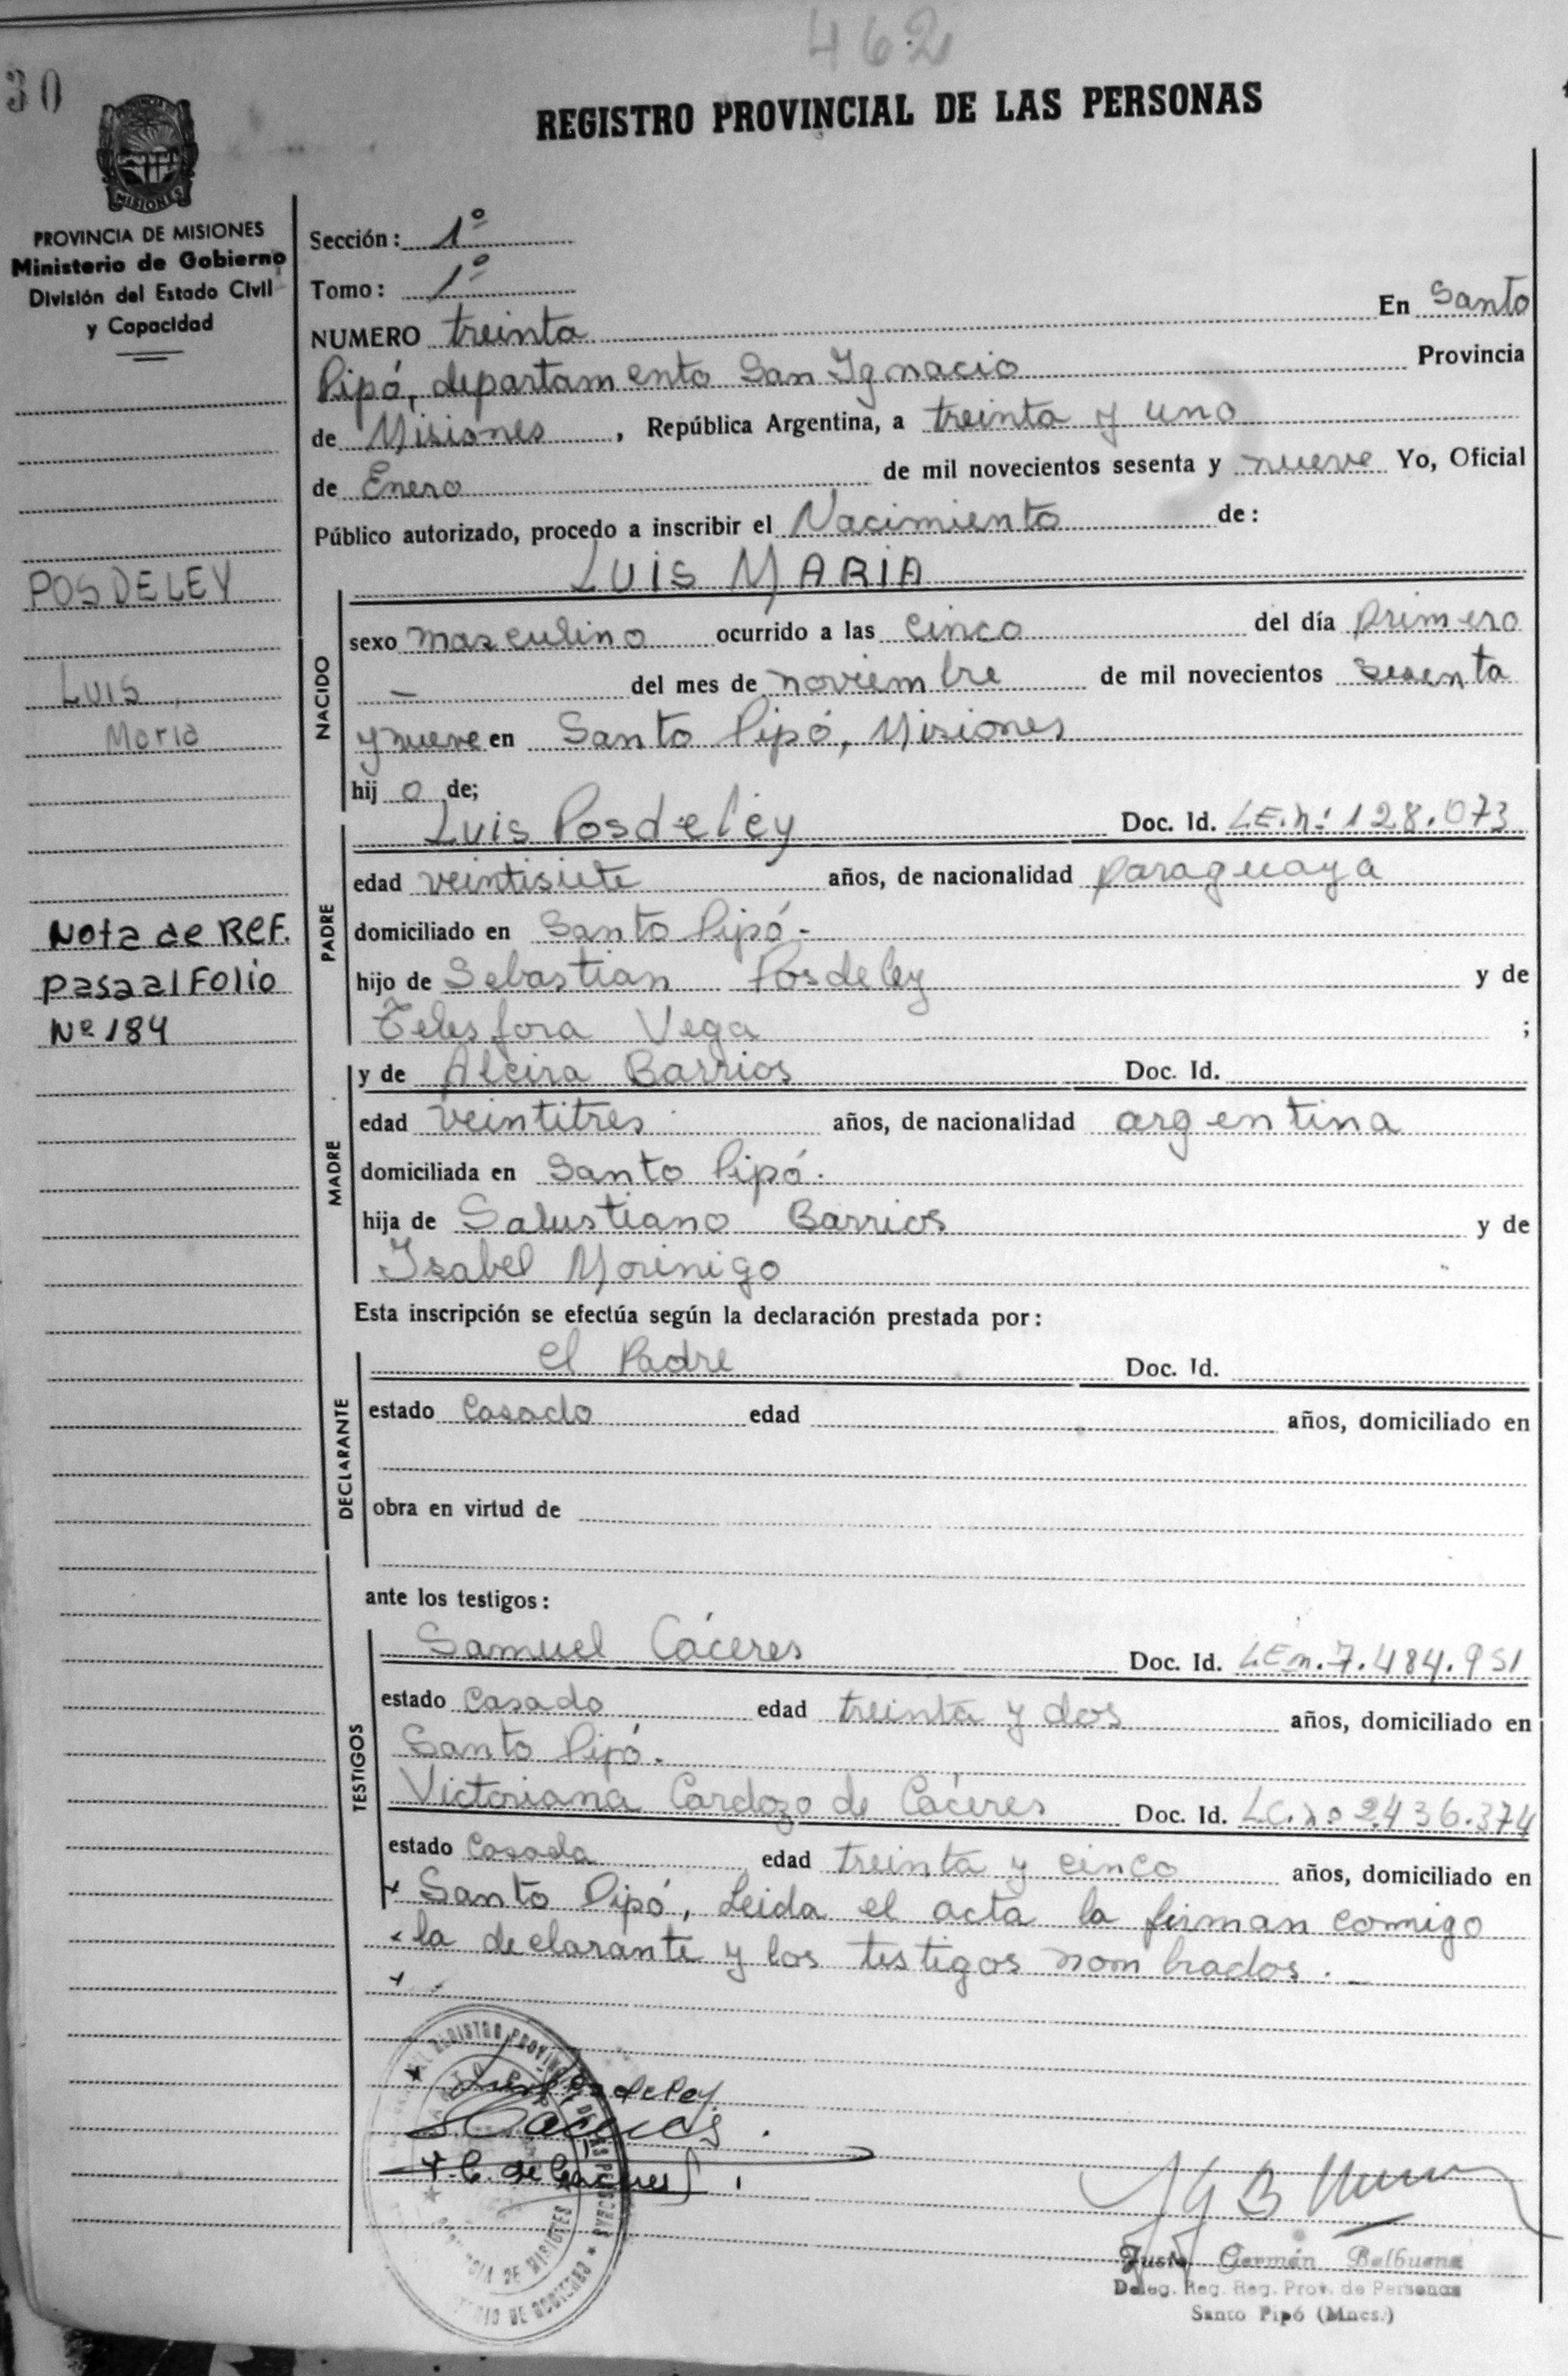 462
30
REGISTRO PROVINCIAL DE LAS PERSONAS
MISIONES
PROVINCIA DE MISIONES
Ministerio de Gobierno
División del Estado Civil
y Capacidad
POSDELEY
LUIS
Maria
Nota de REF.
pasa al Folio
Nº 184
Sección: 1º
Tomo: 1º
NUMERO treinta En Santo
Pipó, departamento San Ignacio Provincia
de Misiones, República Argentina, a treinta y uno
de Enero de mil novecientos sesenta y nueve Yo, Oficial
Público autorizado, procedo a inscribir el Nacimiento de:
LUIS MARIA
NACIDO
sexo masculino ocurrido a las cinco del día primero
— del mes de noviembre de mil novecientos sesenta
y nueve en Santo Pipó, Misiones
hij o de;
PADRE
Luis Posdeley Doc. Id. L.E.n: 128.073
edad veintisiete años, de nacionalidad paraguaya
domiciliado en Santo Pipó -
hijo de Sebastian Posdeley y de
Telesfora Vega ;
MADRE
y de Alcira Barrios Doc. Id.
edad veintitres años, de nacionalidad argentina
domiciliada en Santo Pipó.
hija de Salustiano Barrios y de
Isabel Morinigo
Esta inscripción se efectúa según la declaración prestada por:
DECLARANTE
el Padre Doc. Id.
estado Casado edad años, domiciliado en
obra en virtud de
ante los testigos:
TESTIGOS
Samuel Cáceres Doc. Id. L.E.n. 7.484.951
estado Casado edad treinta y dos años, domiciliado en
Santo Pipó.
Victoriana Cardozo de Cáceres Doc. Id. L.C.nº 2.436.374
estado Casada edad treinta y cinco años, domiciliado en
Santo Pipó, Leida el acta la firman comigo
la declarante y los testigos nombrados. —
Luis Posdeley
S. Cáceres
V. C. de Caceres
Justo Germán Balbuena
Deleg. Reg. Reg. Prov. de Personas
Santo Pipó (Mnes.)